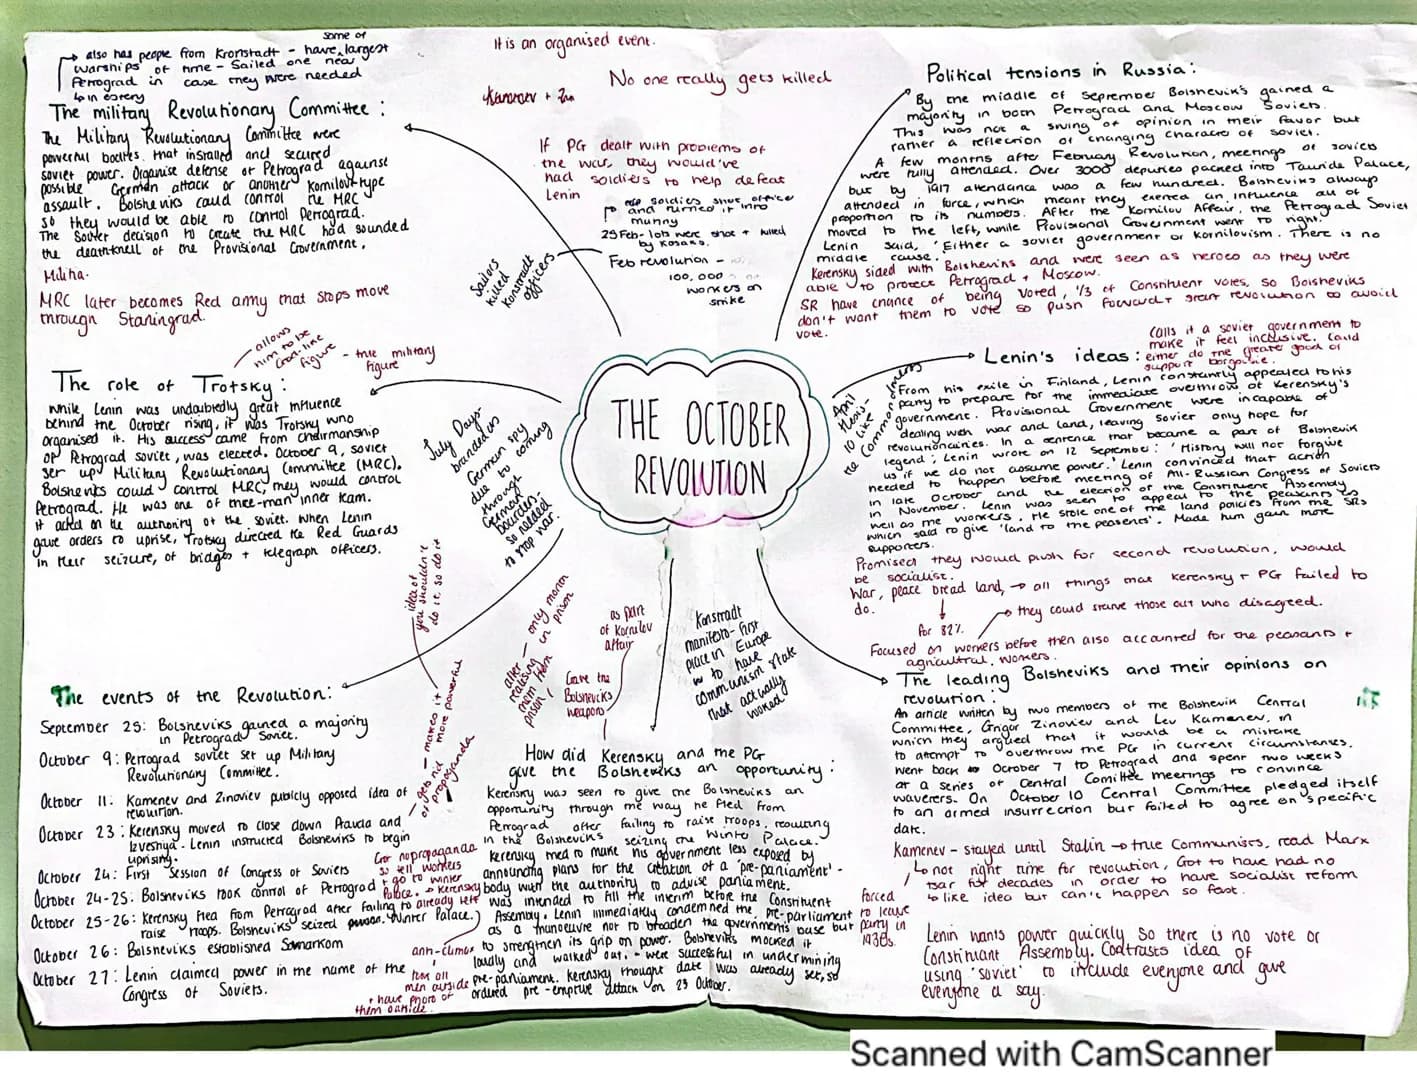 some of
also has people from Kronstadt - have largest
warships of time - Sailed one near
Petrograd in case they were needed
The military Revolutionary Committee:
The Military Revolutionary Committee were
powerful bodies that installed and secured
soviet power. Organise defense of Petrograd against
possible German attack or another Kornilov-type
assault. Bolsheviks could control the MRC
so they would be able to control Petrograd.
The Soviet decision to create the MRC had sounded
the deathknell of the Provisional Government.
Militia.
MRC later becomes Red army that stops move
through Staningrad.
It is an organised event.
No one really gets killed
If PG dealt with problems of
the war, they would've
had soldiers to help defeat
Lenin
soldiers shot officer
and turned it into
mutiny
25 Feb - lots were shot + killed
by Kosaks.
Feb revolution -
100,000
workers on
strike
Sailors
killed
Konstradt
officers
Political tensions in Russia:
By the middle of September Bolshevik's gained a
majority in both Petrograd and Moscow Soviets.
This was not a swing of opinion in their favor but
rather a reflection of changing characte of soviet.
A few months after February Revolution, meetings of soviets
were fully attended. Over 3000 deputies packed into Tauride Palace,
but by 1917 attendance was a few hundred. Bolsheviks always
attended in force, which meant they exerted an influence out of
proportion to its numbers. After the Kornilov Affair, the Petrograd Soviet
moved to the left, while Provisional Government went to right.
Lenin said, 'Either a soviet government or Kornilovism. There is no
middle cause.'
Kerensky sided with Bolsheviks and were seen as heroes as they were
able to protect Petrograd + Moscow.
SR have chance of being voted, 1/3 of Constituent votes, so Bolsheviks
don't want them to vote so push forward + start revolution to avoid
vote.
The role of Trotsky:
allows
him to be
front-line
figure
- true military
figure
While, Lenin was undoubtedly great influence
behind the October rising, it was Trotsky who
organised it. His success came from chairmanship
of Petrograd soviet, was elected. October 9, soviet
set up Military Revolutionary Committee (MRC).
Bolsheviks could control MRC, they would control
Petrograd. He was one of three-man inner team.
it acted on the authority of the soviet. When Lenin
gave orders to uprise, Trotsky directed the Red Guards
in their seizure, of bridges + telegraph officers.
July Days-
branded as
German spy
due to coming
through
German
boarders.
so needed
to stop war.
THE OCTOBER
REVOLUTION
Lenin's ideas:
Calls it a soviet government to
make it feel inclusive. Could
either do the greater good or
support
April
thesis-
10 like
the Commandments
From his exile in Finland, Lenin constantly appealed to his
party to prepare for the immediate overthrow of Kerensky's
government. Provisional Government were incapable of
dealing with war and land, leaving soviet only hope for
revolutionaries. In a sentence that became a part of Bolshevik
legend; Lenin wrote on 12 September: 'History will not forgive
us if we do not assume power.' Lenin convinced that action
needed to happen before meeting of All-Russian Congress of Soviets
in late October and the election of the Constituent Assembly
in November. Lenin was seen to appeal to the peasants as
well as the workers. He stole one of the land policies from the SRs
which said to give 'land to the peasents'. Made him gain more
supporters.
Promised they would push for second revolution, would
be socialist.
War, peace bread land, → all things that Kerensky + PG failed to
do.
for 82%
they could starve those out who disagreed.
Focused on workers before then also accounted for the peasants +
agricultral workers.
idea of
you shouldn't
do it, so do it
- makes it
more powerful
gets rid
propaganda
after - only month
realising in prison
them from
prison
as part
of Kornilov
affair
Gave the
Bolsheviks
weapons
Konstradt
manifesto - first
place in Europe
to have
communism state
that actually
worked
The events of the Revolution:
September 25: Bolsheviks gained a majority
in Petrograd Soviet.
October 9: Petrograd soviet set up Military
Revolutionary Committee.
October 11: Kamenev and Zinoviev publicly opposed idea of
revolution.
October 23: Kerensky moved to close down Pravda and
Izveshya. Lenin instructed Bolsheviks to begin
uprising.
October 24: First Session of Congress of Soviets
October 24-25: Bolsheviks took control of Petrograd
October 25-26: Kerensky fled from Petrograd after failing to
raise troops. Bolsheviks seized Winter Palace.
October 26: Bolsheviks established Sovnarkom
October 27: Lenin claimed power in the name of the
Congress of Soviets.
Got no propaganda
so tell workers
+ go to winter
Palace. → Kerensky
already left
anti-climax
men outside
+ have photo of
them outside.
How did Kerensky and the PG
give the Bolsheviks an opportunity:
Kerensky was seen to give the Bolsheviks an
opportunity through the way he fled from
Petrograd after failing to raise troops, resulting
in the Bolsheviks seizing the Winter Palace.
Kerensky tried to make his government less exposed by
announcing plans for the creation of a 'pre-parliament' -
body with the authority to advise parliament.
was intended to fill the interim before the Constituent
Assembly. Lenin immediately condemned the pre-parliament
as a manoeuvre not to broaden the governments base but
to strengthen its grip on power. Bolsheviks mocked it
loudly and walked out, - were successful in undermining
pre-parliament. Kerensky thought date was already set, so
ordered pre-emptive attack on 23 October.
The leading Bolsheviks and their opinions on
revolution:
An article written by two members of the Bolshevik Central
Committee, Grigor Zinoviev and Lev Kamenev, in
which they argued that it would be a mistake
to attempt to overthrow the PG in current circumstances.
Went back to October 7 to Petrograd and spent two weeks
at a series of Central Comittee meetings to convince
waverers. On October 10 Central Committee pledged itself
to an armed insurrection but failed to agree on specific
date.
Kamenev - stayed until Stalin → true Communists, read Marx
not right time for revolution, Got to have had no
tsar for decades in order to have socialist reform
like idea but can't happen so fast.
forced
to leave
party in
1930s.
Lenin wants power quickly so there is no vote or
Constituant Assembly. Contrasts idea of
using 'soviet' to include everyone and give
everyone a say.
Scanned with CamScanner